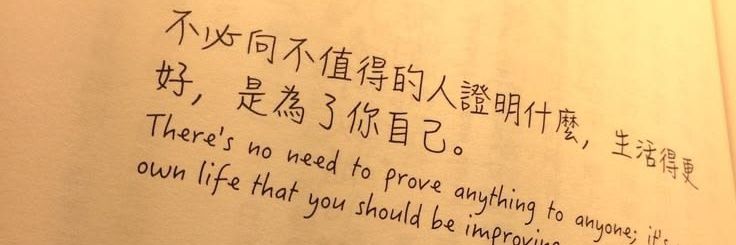 不必向不值得的人證明什麼，生活得更
好，是為了你自己。
There's no need to prove anything to anyone; it's
own life that you should be